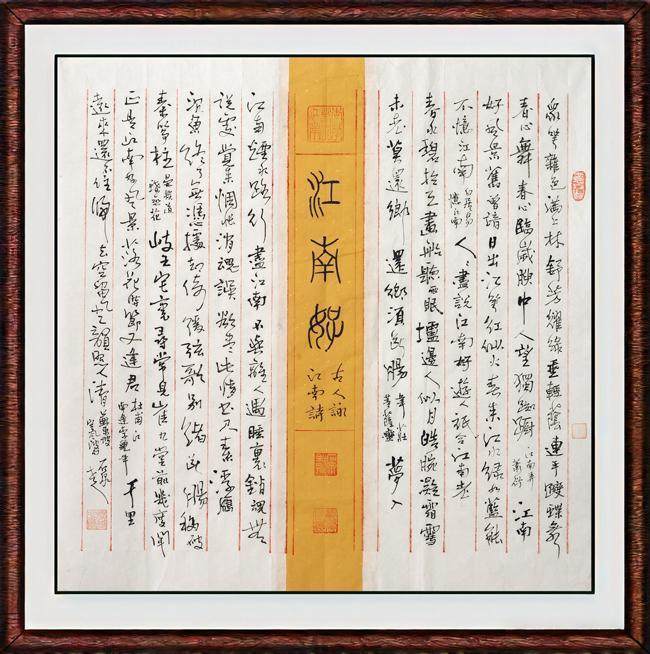 衆花雜色滿上林舒芳耀綠垂輕陰連手躞蹀舞
春心舞春心臨歲腴中人望獨踟躕 江南弄 蕭衍 江南
好風景舊曾諳日出江花紅似火春來江水綠如藍能
不憶江南 白居易 憶江南 人人盡說江南好遊人祇合江南老
春水碧於天畫船聽雨眠壚邊人似月皓腕凝霜雪
未老莫還鄉還鄉須斷腸 韋莊 菩薩蠻 夢入
江南好
古人詠
江南詩
江南煙水路行盡江南不與離人遇睡裏銷魂無
說處覺來惆悵消魂誤欲盡此情書尺素浮雁
沉魚終了無憑據却倚緩弦歌別緒斷腸移破
秦箏柱 晏幾道 蝶戀花 岐王宅裏尋常見崔九堂前幾度聞
正是江南好風景落花時節又逢君 杜甫江南逢李龜年 千里
遠來還不住歸去空留